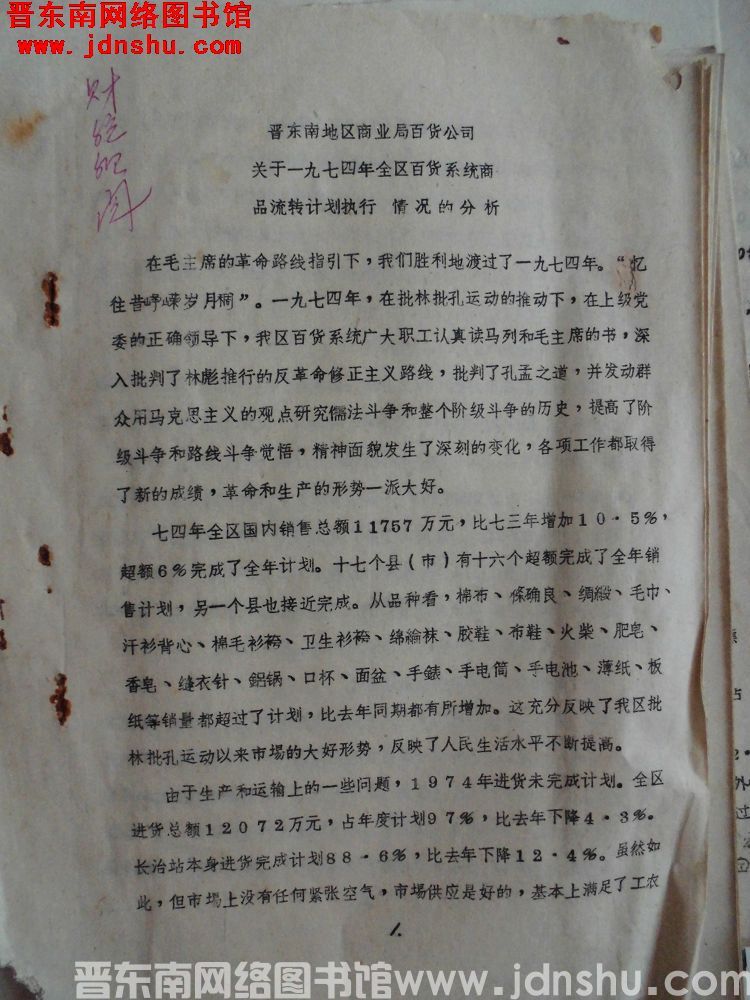 晋东南网络图书馆
www.jdnshu.com
财
晋东南地区商业局百货公司
关于一九七四年全区百货系统商
品流转计划执行 情况的分析
在毛主席的革命路线指引下，我们胜利地渡过了一九七四年。“忆
往昔峥嵘岁月稠”。一九七四年，在批林批孔运动的推动下，在上级党
委的正确领导下，我区百货系统广大职工认真读马列和毛主席的书，深
入批判了林彪推行的反革命修正主义路线，批判了孔孟之道，并发动群
众用马克思主义的观点研究儒法斗争和整个阶级斗争的历史，提高了阶
级斗争和路线斗争觉悟，精神面貌发生了深刻的变化，各项工作都取得
了新的成绩，革命和生产的形势一派大好。
七四年全区国内销售总额11757万元，比七三年增加10·5%，
超额6%完成了全年计划。十七个县（市）有十六个超额完成了全年销
售计划，另一个县也接近完成。从品种看，棉布、倏确良、绸缎、毛巾、
汗衫背心、棉毛衫裤、卫生衫裤、绵綸袜、胶鞋、布鞋、火柴、肥皂、
香皂、缝衣针、鋁锅、口杯、面盆、手錶、手电筒、手电池、薄纸、板
纸等销量都超过了计划，比去年同期都有所增加。这充分反映了我区批
林批孔运动以来市場的大好形势，反映了人民生活水平不断提高。
由于生产和运输上的一些问题，1974年进货未完成计划。全区
进货总额12072万元，占年度计划97%，比去年下降4·3%。
长治站本身进货完成计划88·6%，比去年下降12·4%。虽然如
此，但市場上没有任何紧张空气，市場供应是好的，基本上满足了工农
1.
晋东南网络图书馆www.jdnshu.com